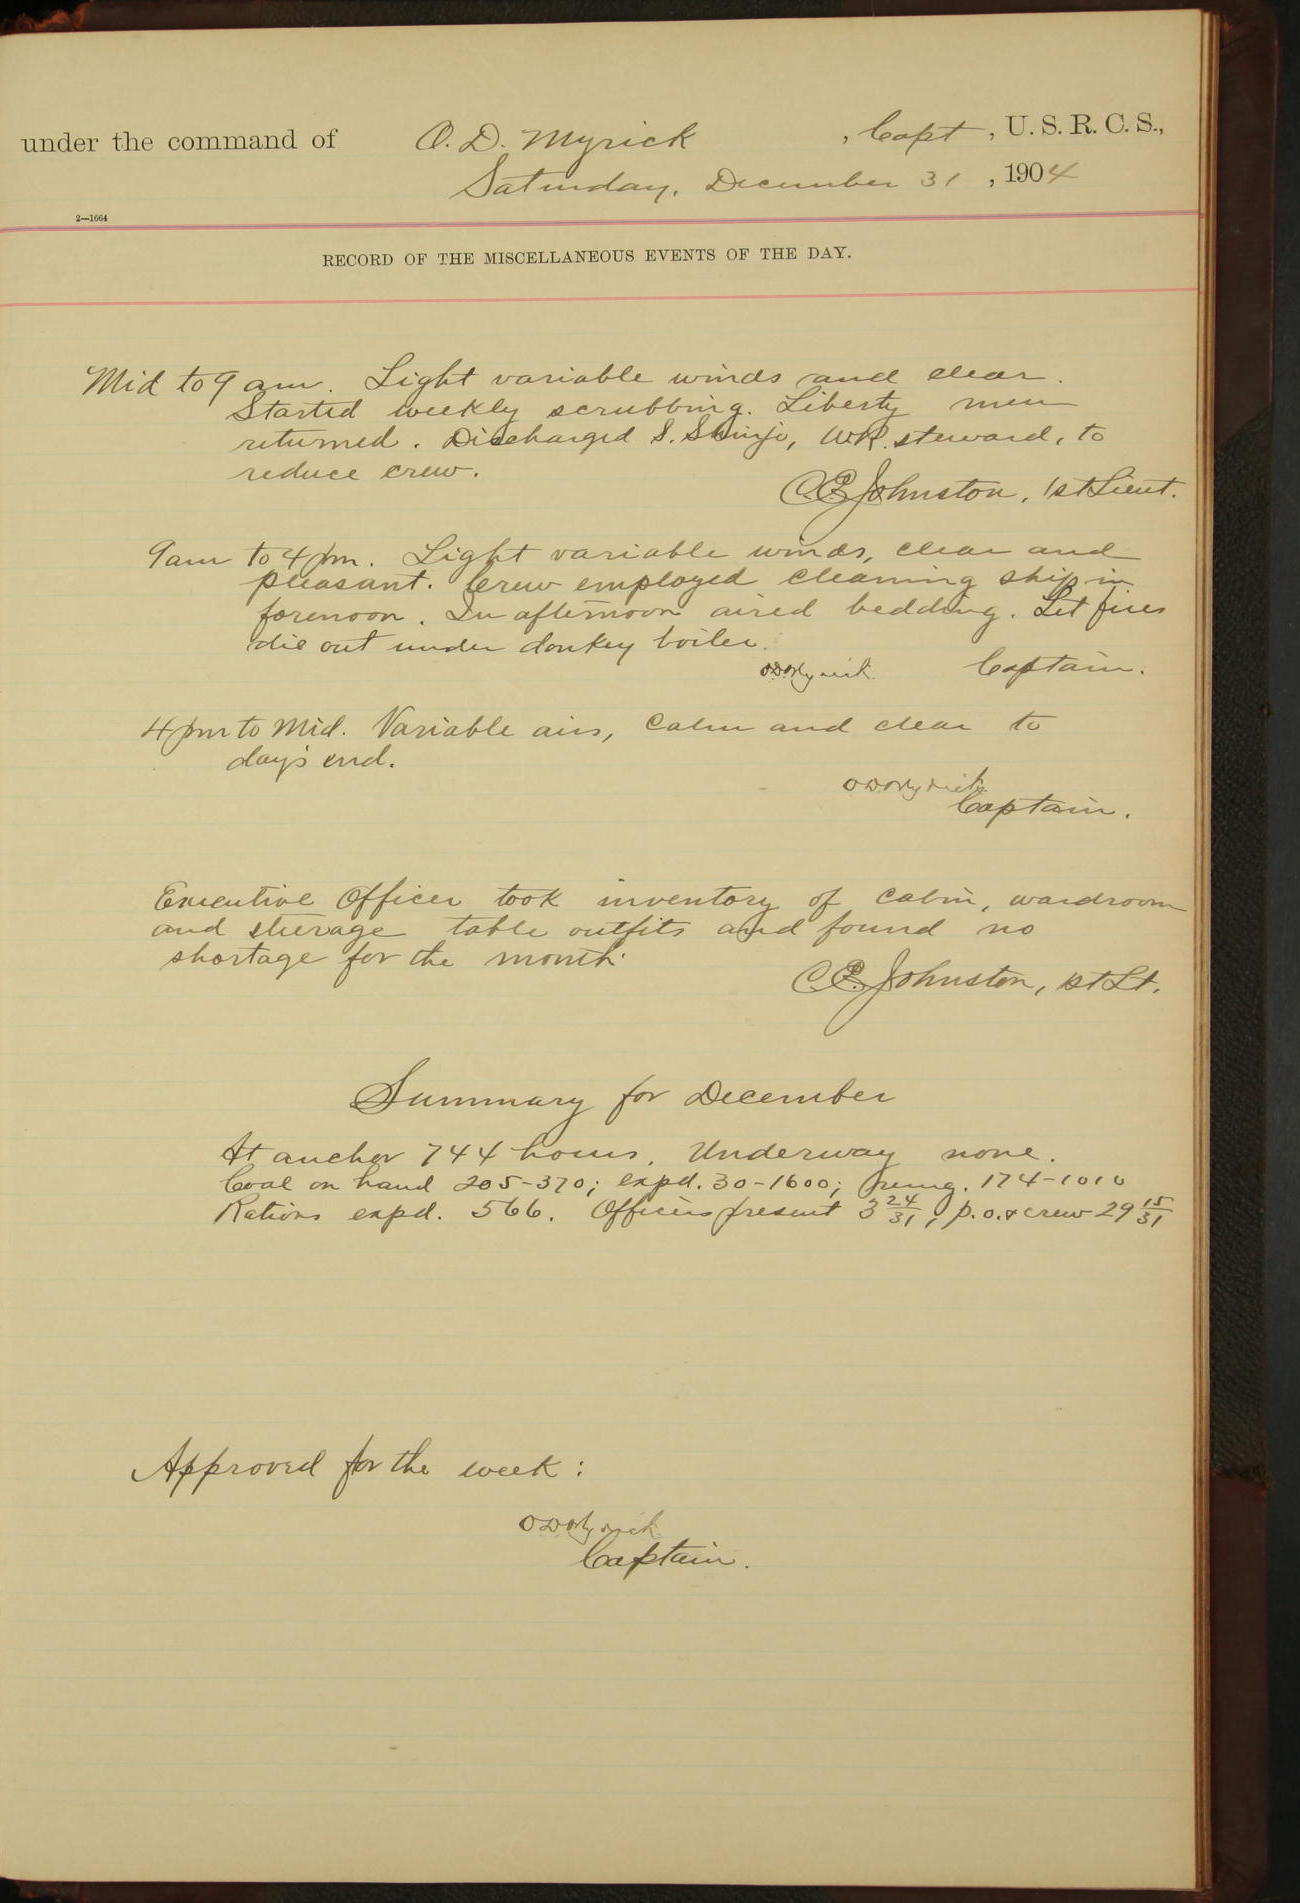 under the command of O. D. Myrick, Capt, U. S. R. C. S.,
Saturday, December 31, 1904
2—1664
RECORD OF THE MISCELLANEOUS EVENTS OF THE DAY.
Mid to 9 am. Light variable winds and clear.
Started weekly scrubbing. Liberty men
returned. Discharged S. Shinjo, W.R. steward, to
reduce crew.
C.E. Johnston, 1st Lieut.
9am to 4 pm. Light variable winds, clear and
pleasant. Crew employed cleaning ship in
forenoon. In afternoon aired bedding. Let fires
die out under donkey boiler.
O D Myrick Captain.
4 pm to Mid. Variable airs, calm and clear to
day's end.
O D Myrick
Captain.
Executive Officer took inventory of cabin, wardroom
and steerage table outfits and found no
shortage for the month.
C.E. Johnston, 1st Lt.
Summary for December
At anchor 744 hours. Underway none.
Coal on hand 205-370; expd. 30-1600; remg. 174-1010
Rations expd. 566. Officers present 3 24/31, p.o. & crew 29 15/31
Approved for the week:
O D Myrick
Captain.